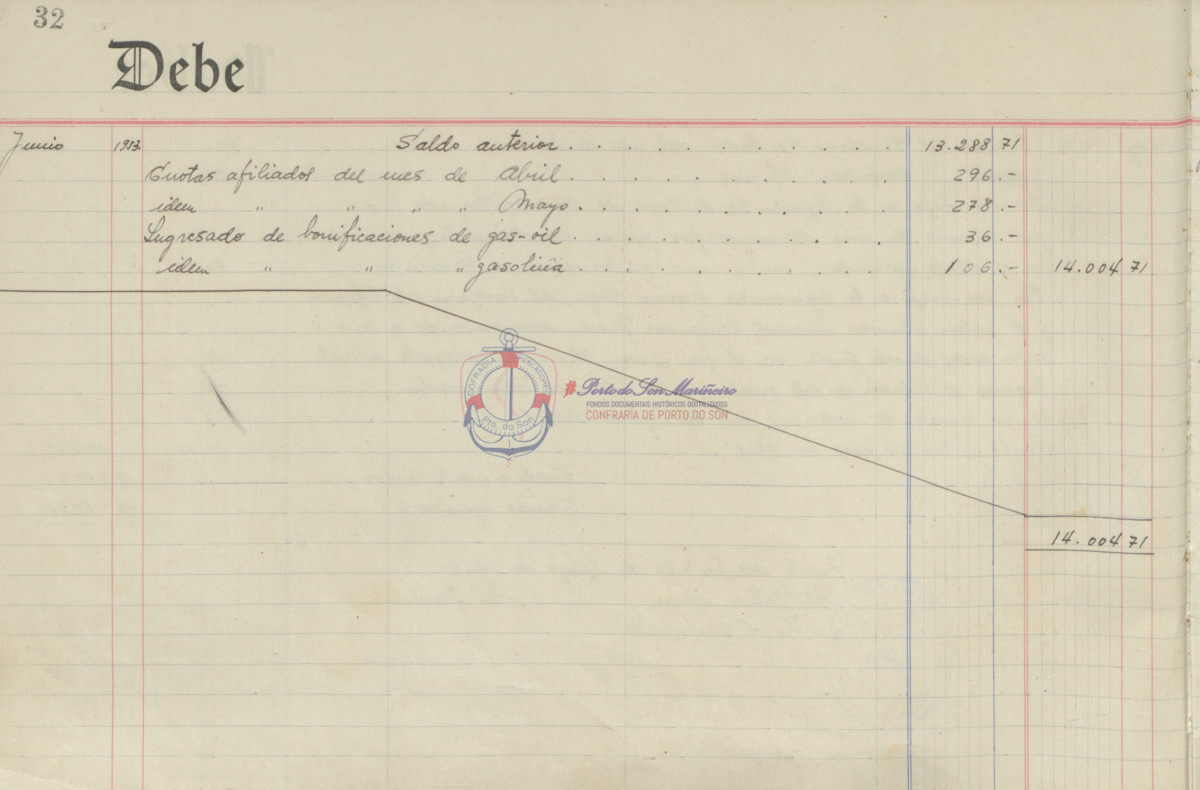 32
Debe
Junio 1953 Saldo anterior . . . . . . . . . 13.288 71
Cuotas afiliados del mes de Abril . . . . . . . . . 296.-
idem " " " " Mayo . . . . . . . . . 278.-
Ingresado de bonificaciones de gas-oil . . . . . . . . . 36.-
idem " " " gasolina . . . . . . . . . 106.- 14.004 71
COFRADIA PESCADORES
Pto. do Son
#Porto do Son Mariñeiro
FONDOS DOCUMENTAIS HISTÓRICOS DIXITALIZADOS
CONFRARÍA DE PORTO DO SON
14.004 71